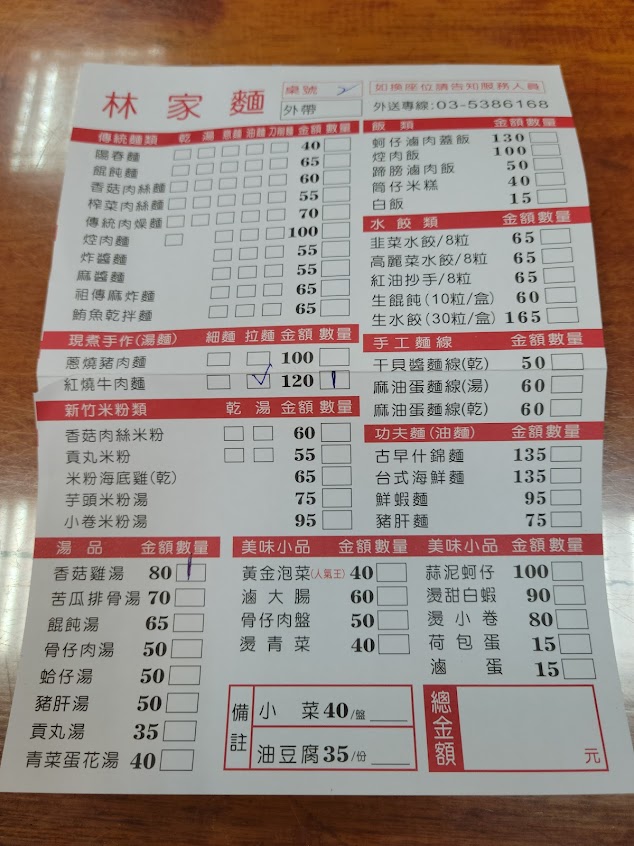 林家麵
桌號 2
外帶
如換座位請告知服務人員
外送專線:03-5386168
傳統麵類 乾 湯 意麵 油麵 刀削麵 金額 數量
陽春麵 40
餛飩麵 65
香菇肉絲麵 60
榨菜肉絲麵 55
傳統肉燥麵 70
焢肉麵 100
炸醬麵 55
麻醬麵 55
祖傳麻炸麵 65
鮪魚乾拌麵 65
現煮手作(湯麵) 細麵 拉麵 金額 數量
蔥燒豬肉麵 100
紅燒牛肉麵 ✓ 120 1
新竹米粉類 乾 湯 金額 數量
香菇肉絲米粉 60
貢丸米粉 55
米粉海底雞(乾) 65
芋頭米粉湯 75
小卷米粉湯 95
飯類 金額 數量
蚵仔滷肉蓋飯 130
焢肉飯 100
蹄膀滷肉飯 50
筒仔米糕 40
白飯 15
水餃類 金額 數量
韭菜水餃/8粒 65
高麗菜水餃/8粒 65
紅油抄手/8粒 65
生餛飩(10粒/盒) 60
生水餃(30粒/盒) 165
手工麵線 金額 數量
干貝醬麵線(乾) 50
麻油蛋麵線(湯) 60
麻油蛋麵線(乾) 60
功夫麵(油麵) 金額 數量
古早什錦麵 135
台式海鮮麵 135
鮮蝦麵 95
豬肝麵 75
湯品 金額 數量
香菇雞湯 80 1
苦瓜排骨湯 70
餛飩湯 65
骨仔肉湯 50
蛤仔湯 50
豬肝湯 50
貢丸湯 35
青菜蛋花湯 40
美味小品 金額 數量
黃金泡菜(人氣王) 40
滷大腸 60
骨仔肉盤 50
燙青菜 40
美味小品 金額 數量
蒜泥蚵仔 100
燙甜白蝦 90
燙小卷 80
荷包蛋 15
滷蛋 15
備註
小菜 40/盤
油豆腐 35/份
總金額 元